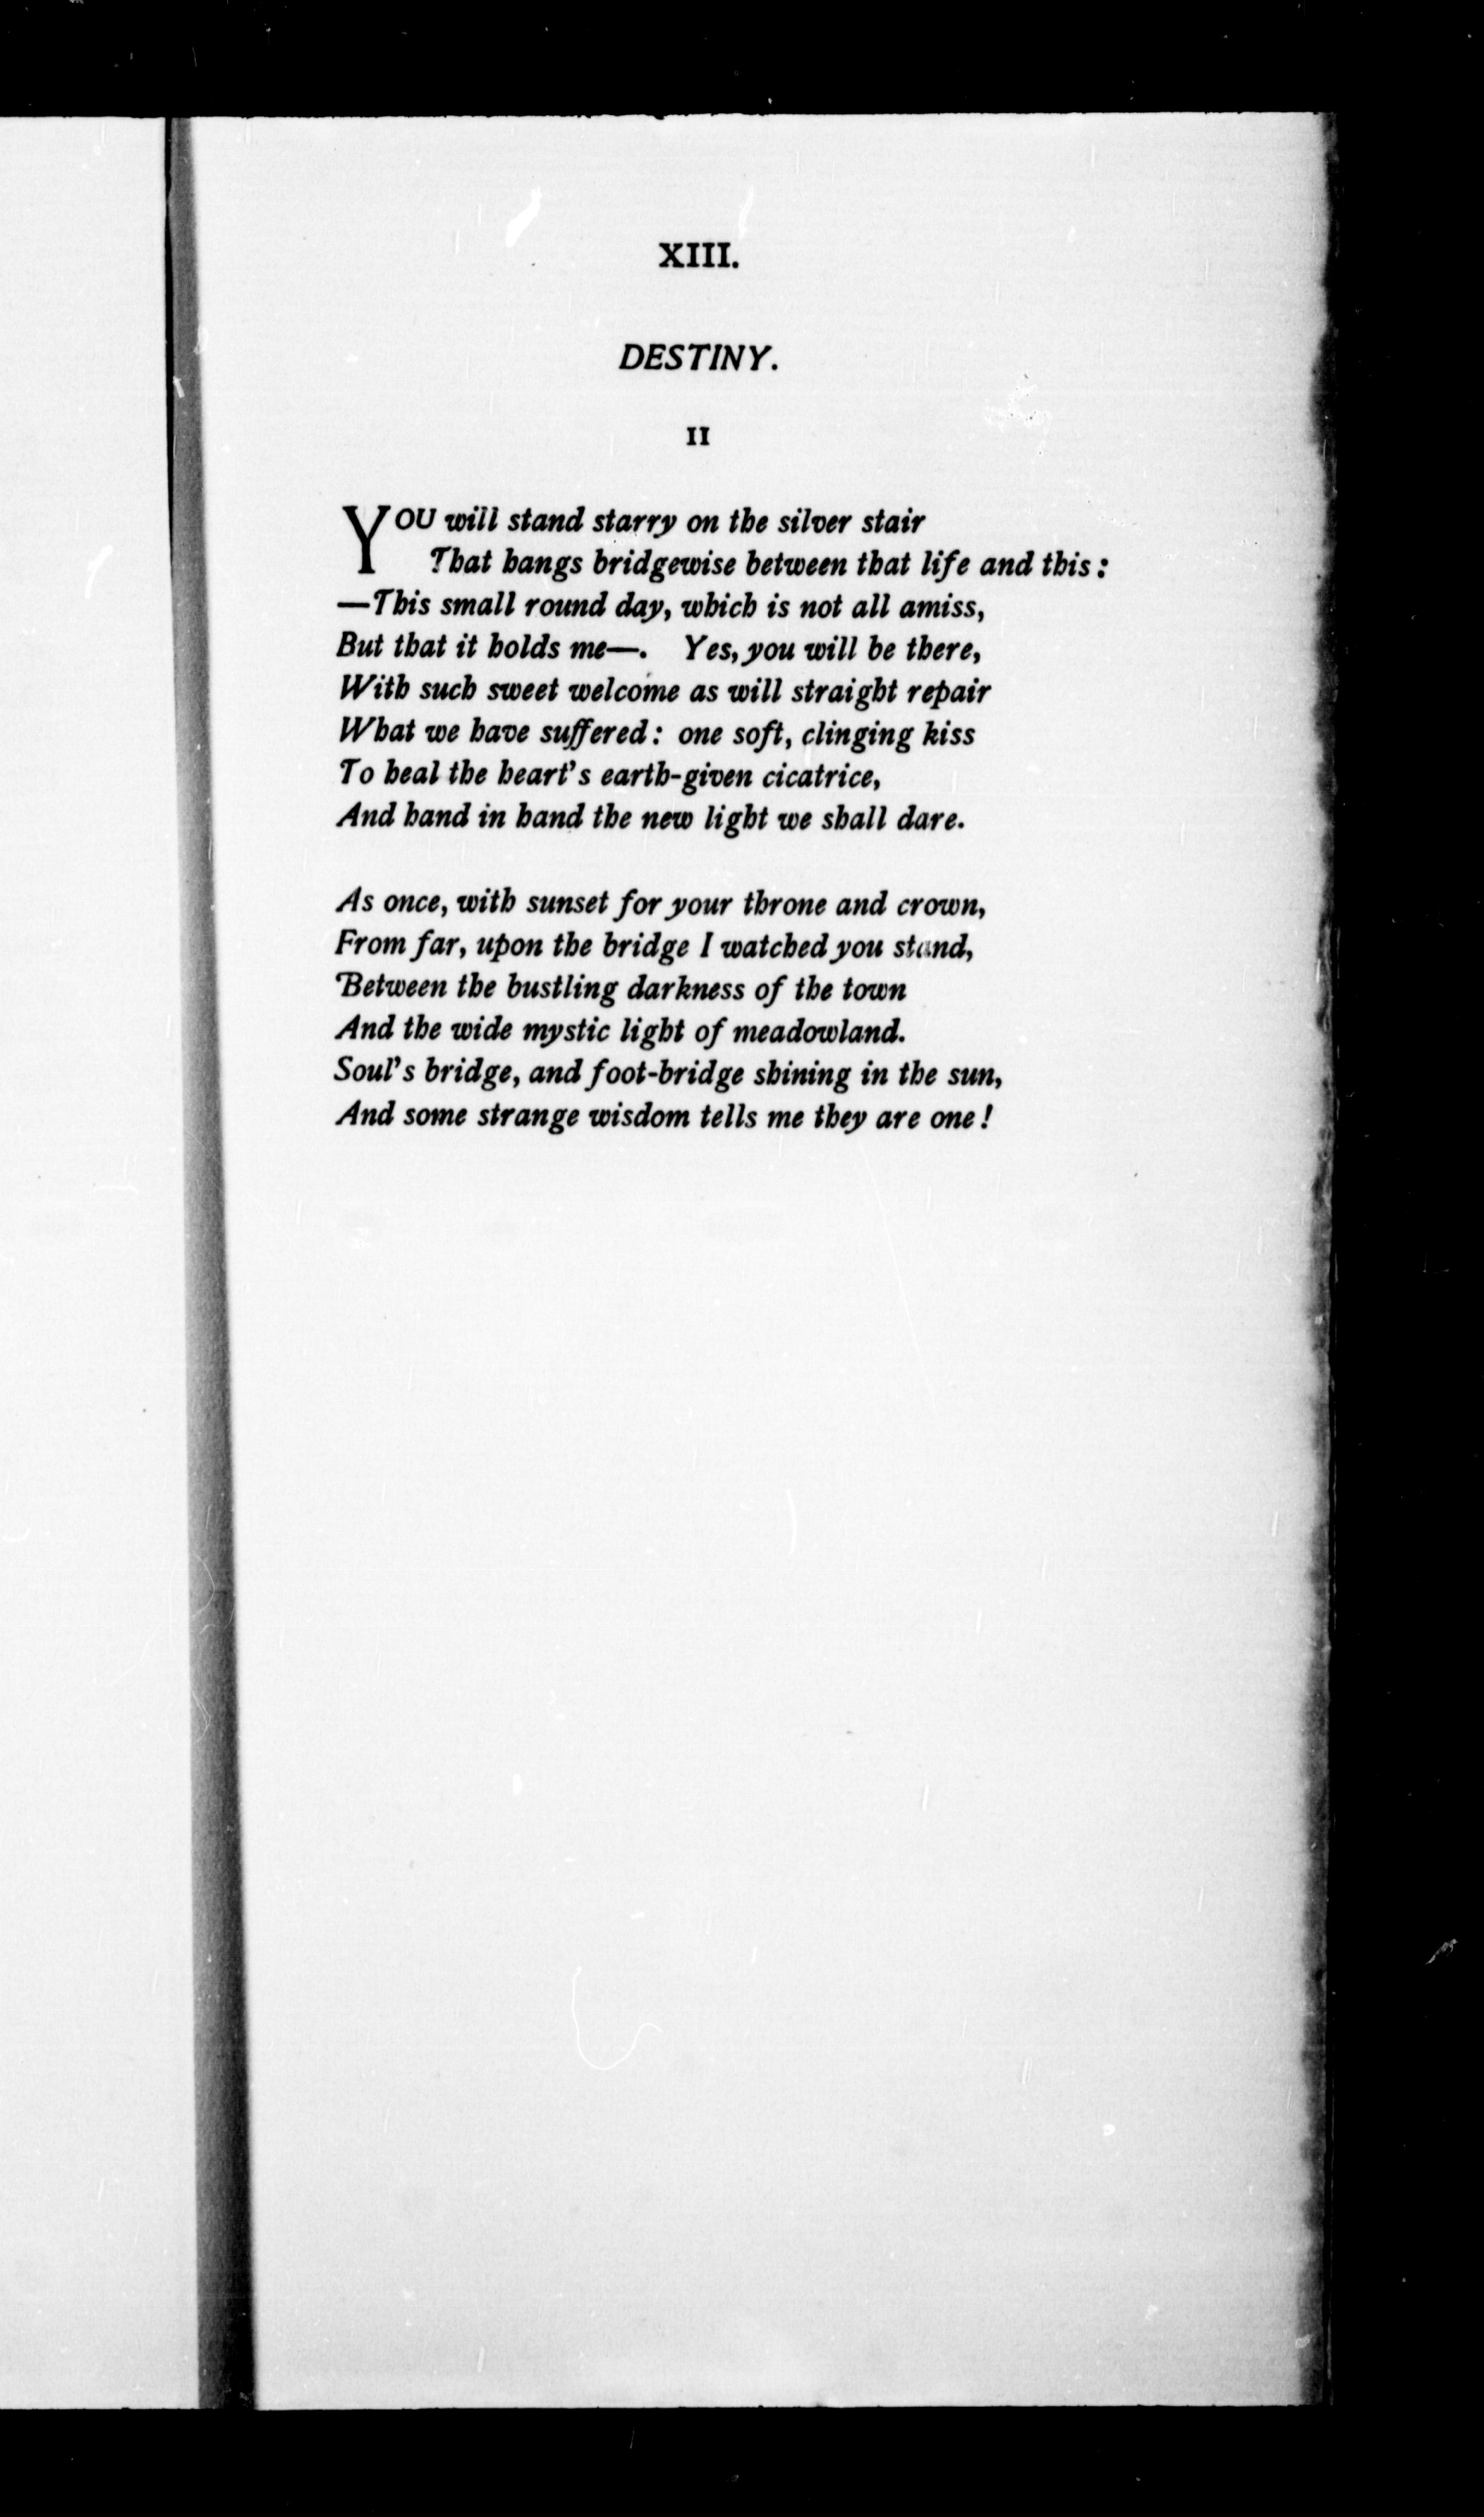 XIII.
DESTINY.
II
YOU will stand starry on the silver stair
That hangs bridgewise between that life and this:
—This small round day, which is not all amiss,
But that it holds me—. Yes, you will be there,
With such sweet welcome as will straight repair
What we have suffered: one soft, clinging kiss
To heal the heart's earth-given cicatrice,
And hand in hand the new light we shall dare.
As once, with sunset for your throne and crown,
From far, upon the bridge I watched you stand,
Between the bustling darkness of the town
And the wide mystic light of meadowland.
Soul's bridge, and foot-bridge shining in the sun,
And some strange wisdom tells me they are one!